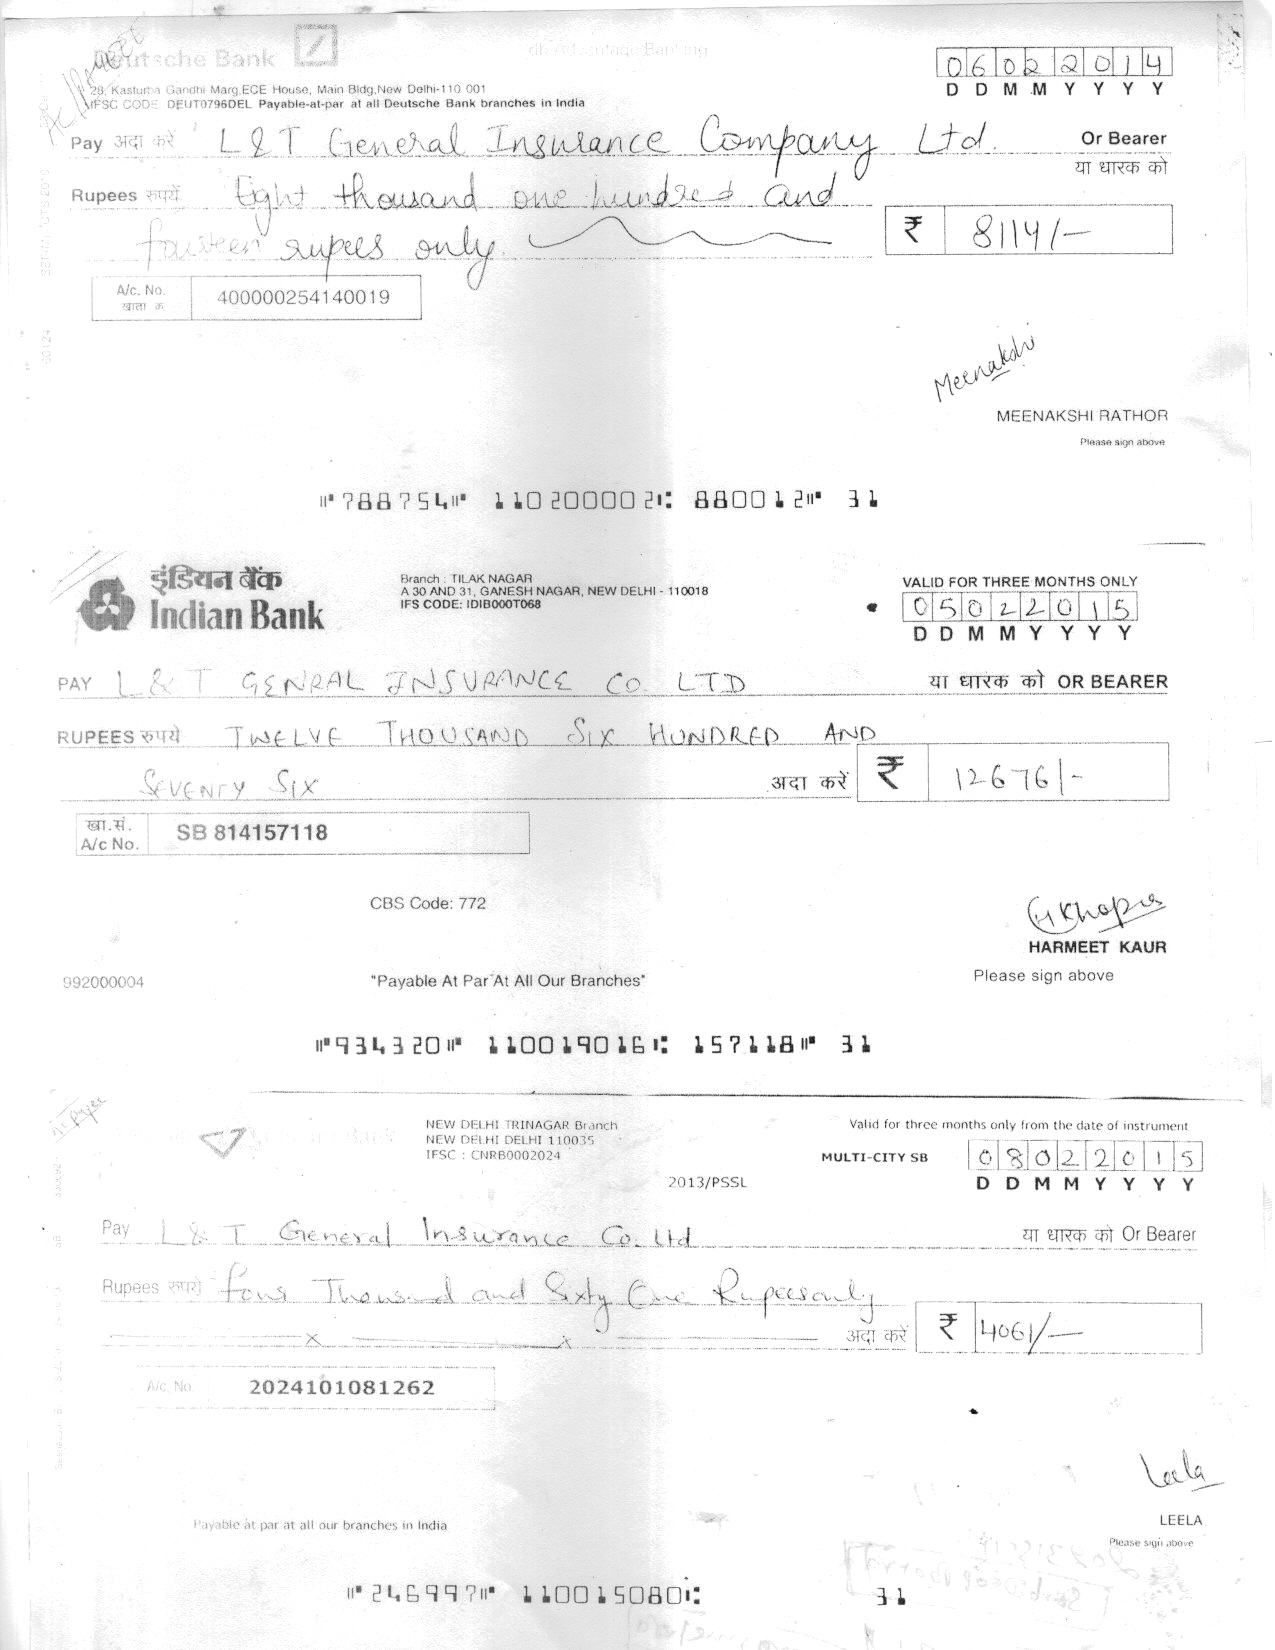 A/c Payee
Deutsche Bank
db AdvantageBanking
06022014
28, Kasturba Gandhi Marg,ECE House, Main Bldg,New Delhi-110 001
D D M M Y Y Y Y
IFSC CODE DEUT0796DEL Payable-at-par at all Deutsche Bank branches in India
Pay अदा करें L&T General Insurance Company Ltd. Or Bearer
या धारक को
Rupees रुपयें Eight thousand one hundred and
fourteen rupees only. ₹ 8114/-
A/c. No. 400000254140019
खाता क्र
Meenakshi
MEENAKSHI RATHOR
Please sign above
⑈788754⑈ 110200002⑆ 880012⑈ 31
इंडियन बैंक
Indian Bank
Branch : TILAK NAGAR
A 30 AND 31, GANESH NAGAR, NEW DELHI - 110018
IFS CODE: IDIB000T068
VALID FOR THREE MONTHS ONLY
05022015
D D M M Y Y Y Y
PAY L&T GENRAL INSURANCE CO. LTD या धारक को OR BEARER
RUPEES रुपये TWELVE THOUSAND SIX HUNDRED AND
SEVENTY SIX अदा करें ₹ 12676/-
खा.सं.
A/c No. SB 814157118
CBS Code: 772
HARMEET KAUR
992000004 "Payable At Par At All Our Branches" Please sign above
⑈934320⑈ 110019016⑆ 157118⑈ 31
NEW DELHI TRINAGAR Branch
NEW DELHI DELHI 110035
IFSC : CNRB0002024
Valid for three months only from the date of instrument
MULTI-CITY SB 08022015
2013/PSSL D D M M Y Y Y Y
Pay L & T General Insurance Co. Ltd या धारक को Or Bearer
Rupees रुपये Four Thousand and Sixty One Rupees only
अदा करें ₹ 4061/-
A/c. No. 2024101081262
Leela
Payable at par at all our branches in India
LEELA
Please sign above
⑈246997⑈ 110015080⑆ 31